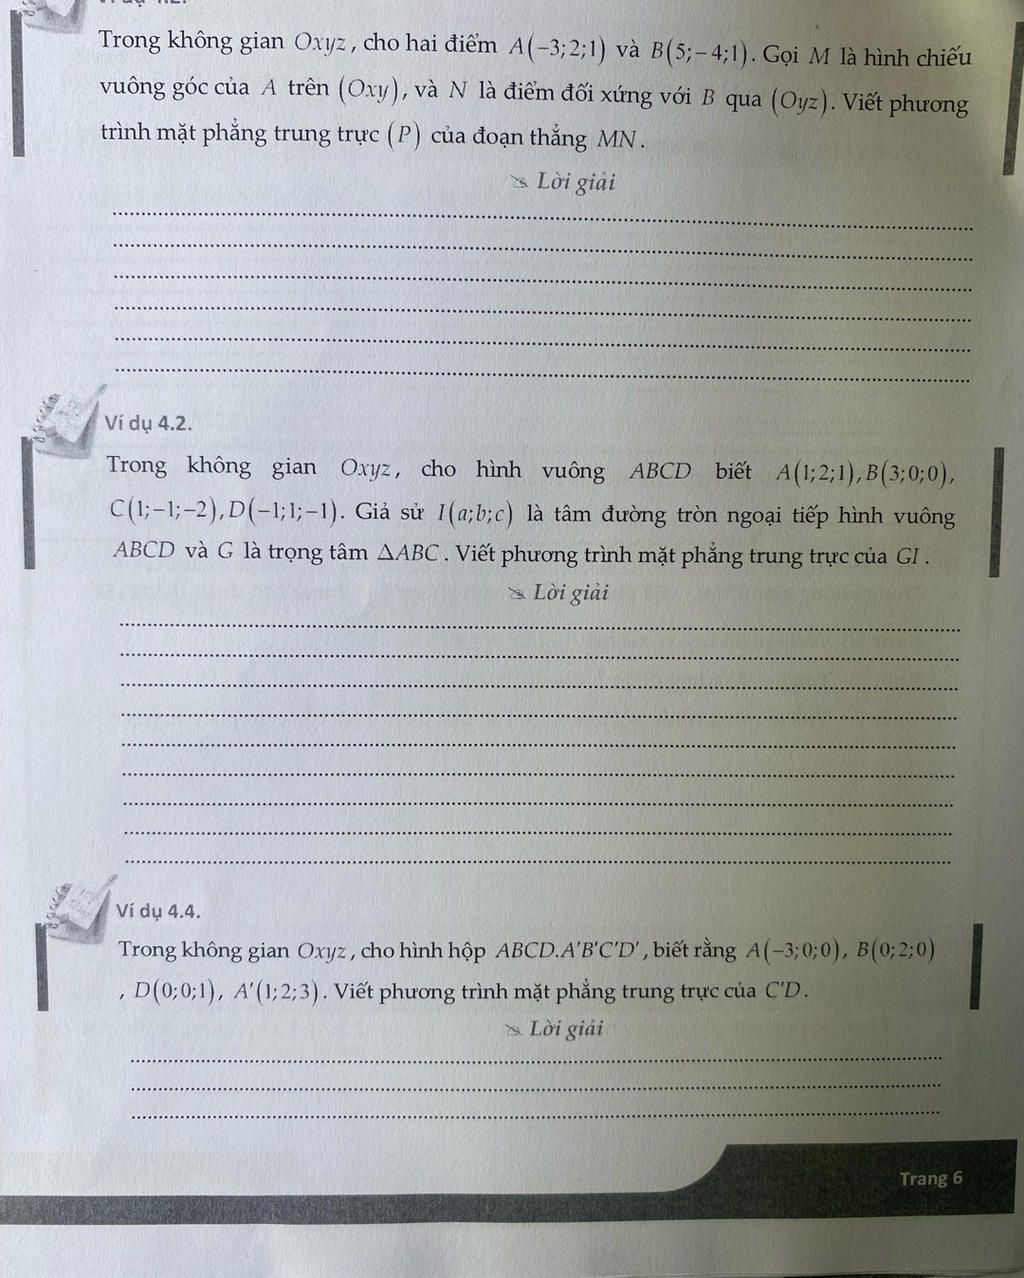 Trong không gian Oxyz, cho hai điểm A(−3;2;1) và B(5;−4;1). Gọi M là hình chiếu
vuông góc của A trên (Oxy), và N là điểm đối xứng với B qua (Oyz). Viết phương
trình mặt phẳng trung trực (P) của đoạn thẳng MN.
Lời giải
Ví dụ 4.2.
Trong không gian Oxyz, cho hình vuông ABCD biết A(1;2;1),B(3;0;0),
C(1;−1;−2),D(−1;1;−1). Giả sử I(a;b;c) là tâm đường tròn ngoại tiếp hình vuông
ABCD và G là trọng tâm ΔABC. Viết phương trình mặt phẳng trung trực của GI.
Lời giải
Ví dụ 4.4.
Trong không gian Oxyz, cho hình hộp ABCD.A'B'C'D', biết rằng A(−3;0;0), B(0;2;0)
, D(0;0;1), A'(1;2;3). Viết phương trình mặt phẳng trung trực của C'D.
Lời giải
Trang 6